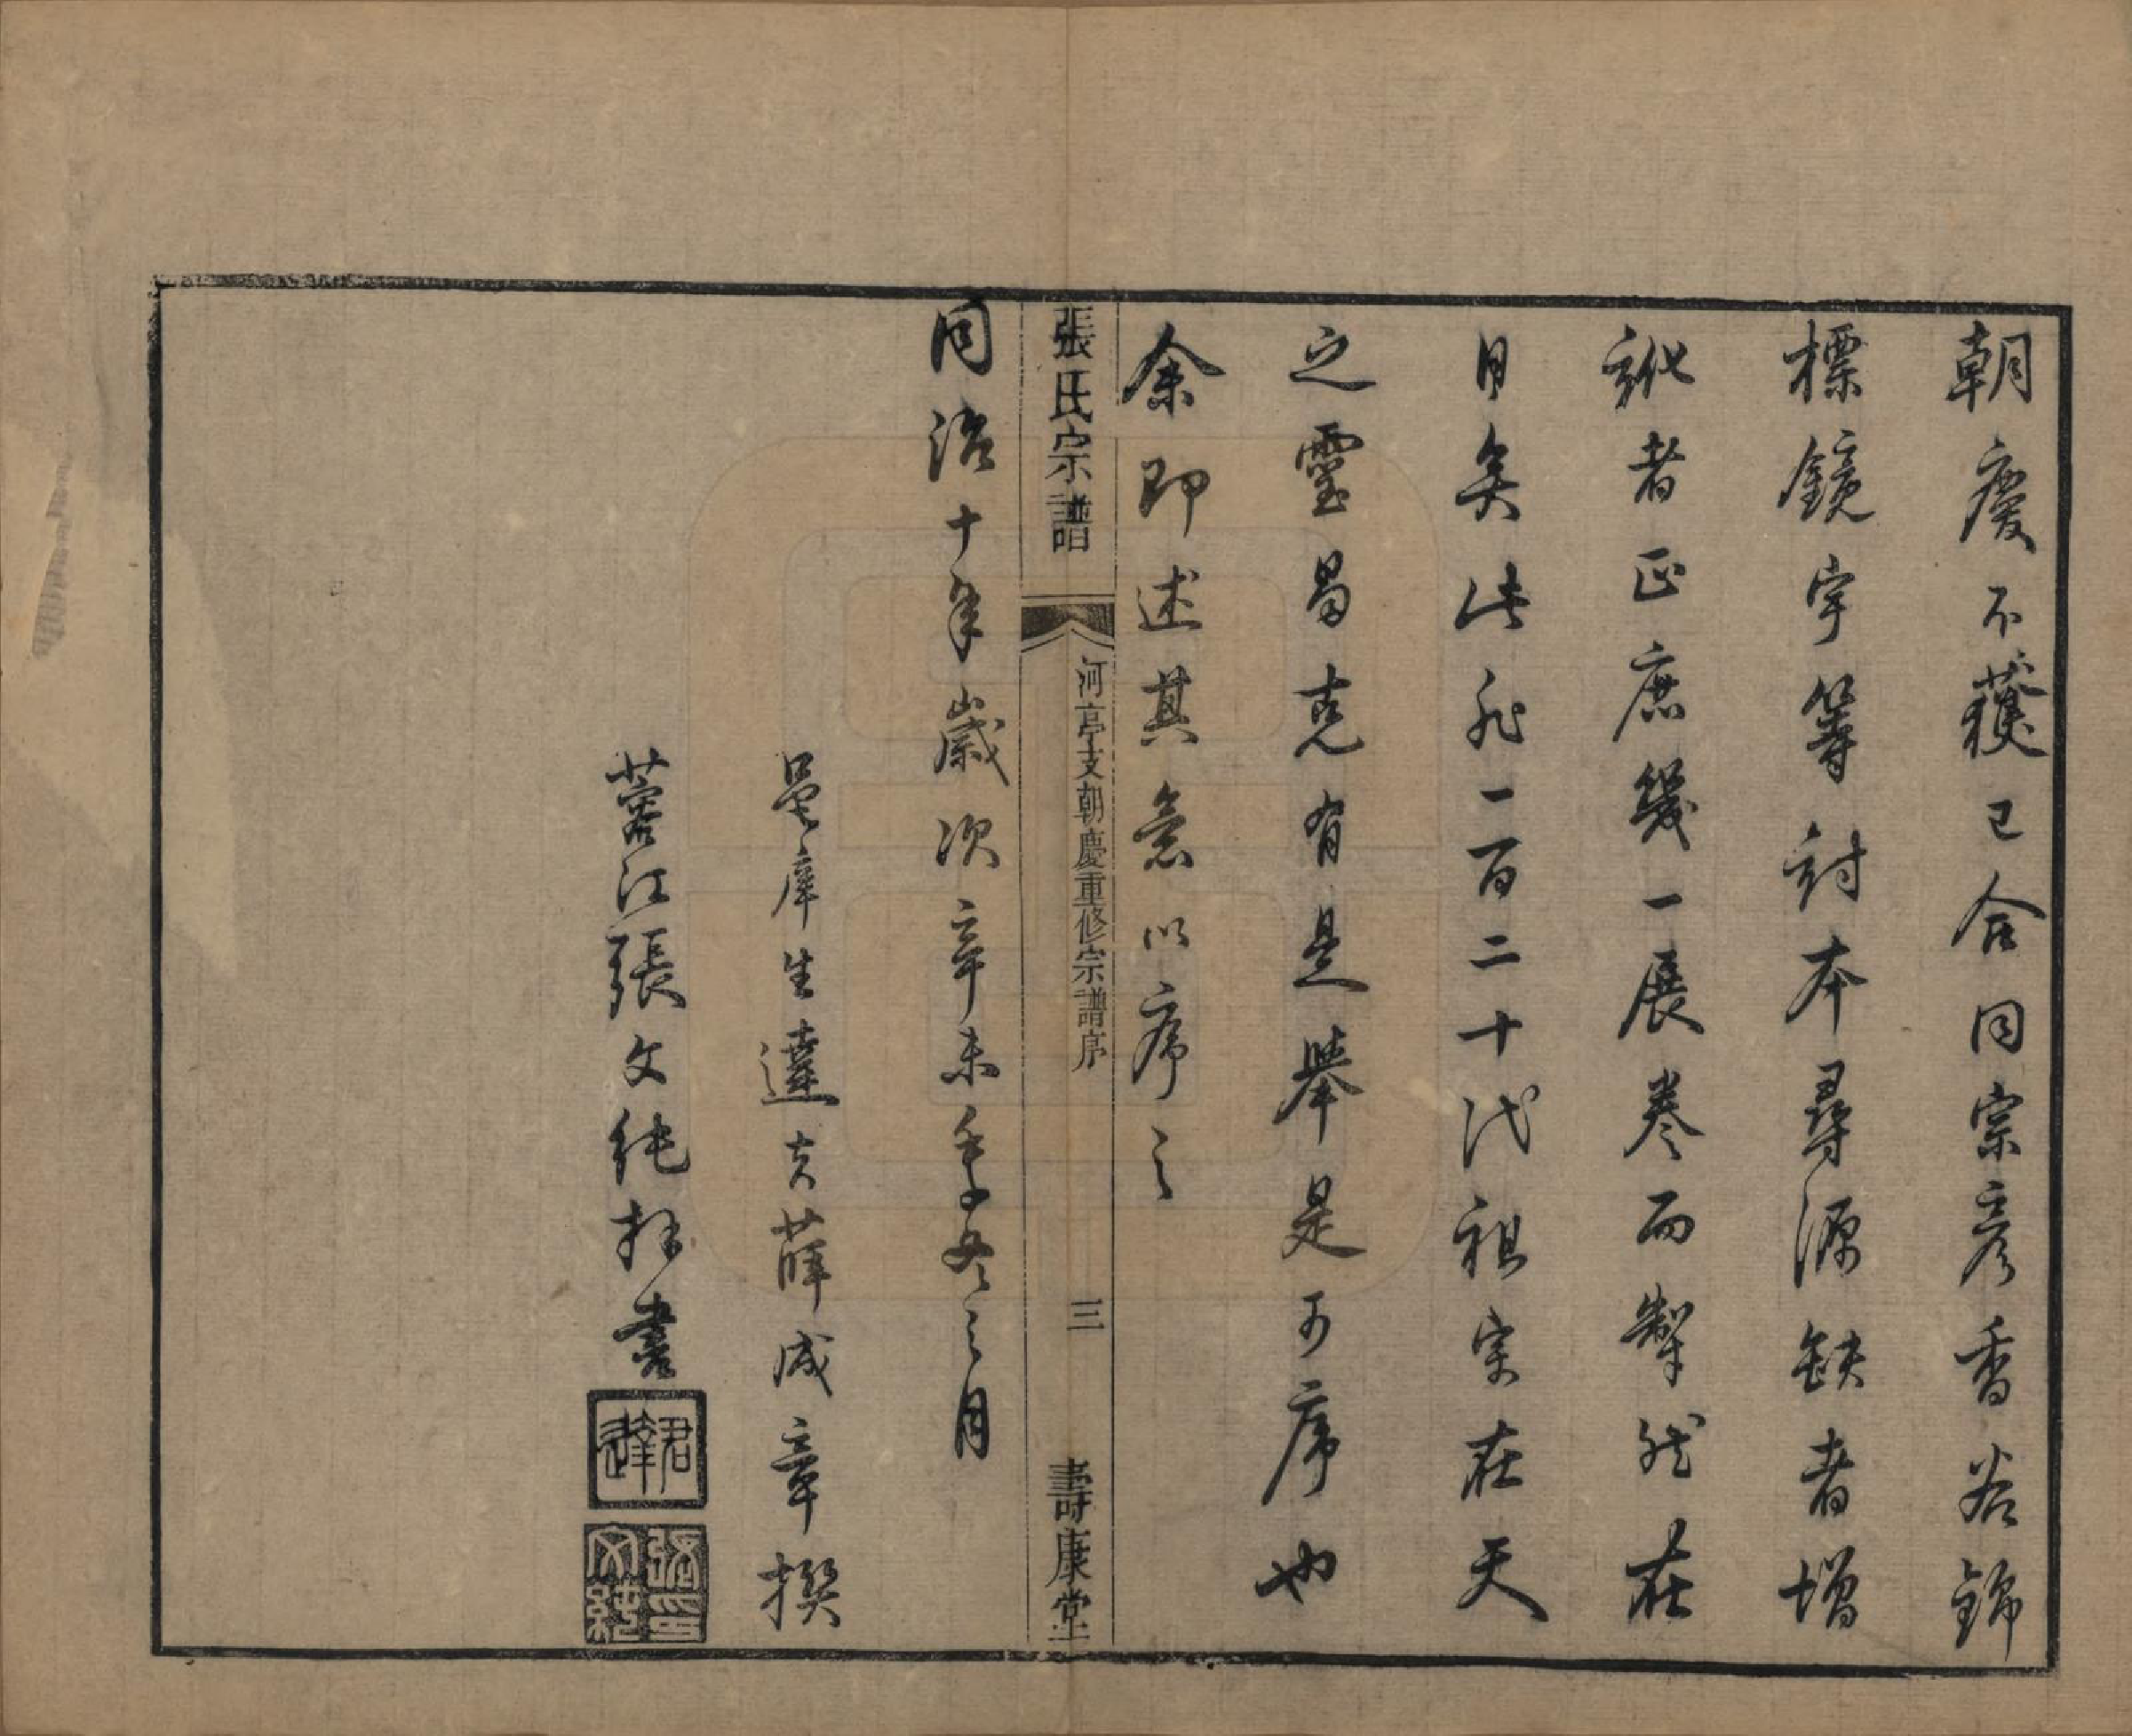 朝慶不獲已合同宗彦香谷錦
標鏡宇等討本尋源缺者增
訛者正庶幾一展卷而犂然在
目矣此非一百二十代祖宗在天
之靈曷克有是舉是可序也
余即述其意以序之
張氏宗譜
河亭支朝慶重修宗譜序
三
壽康堂
同治十年歲次辛未季冬之月
邑庠生達夫薛成章撰
蓉江張文純抒書
君達
張印文純